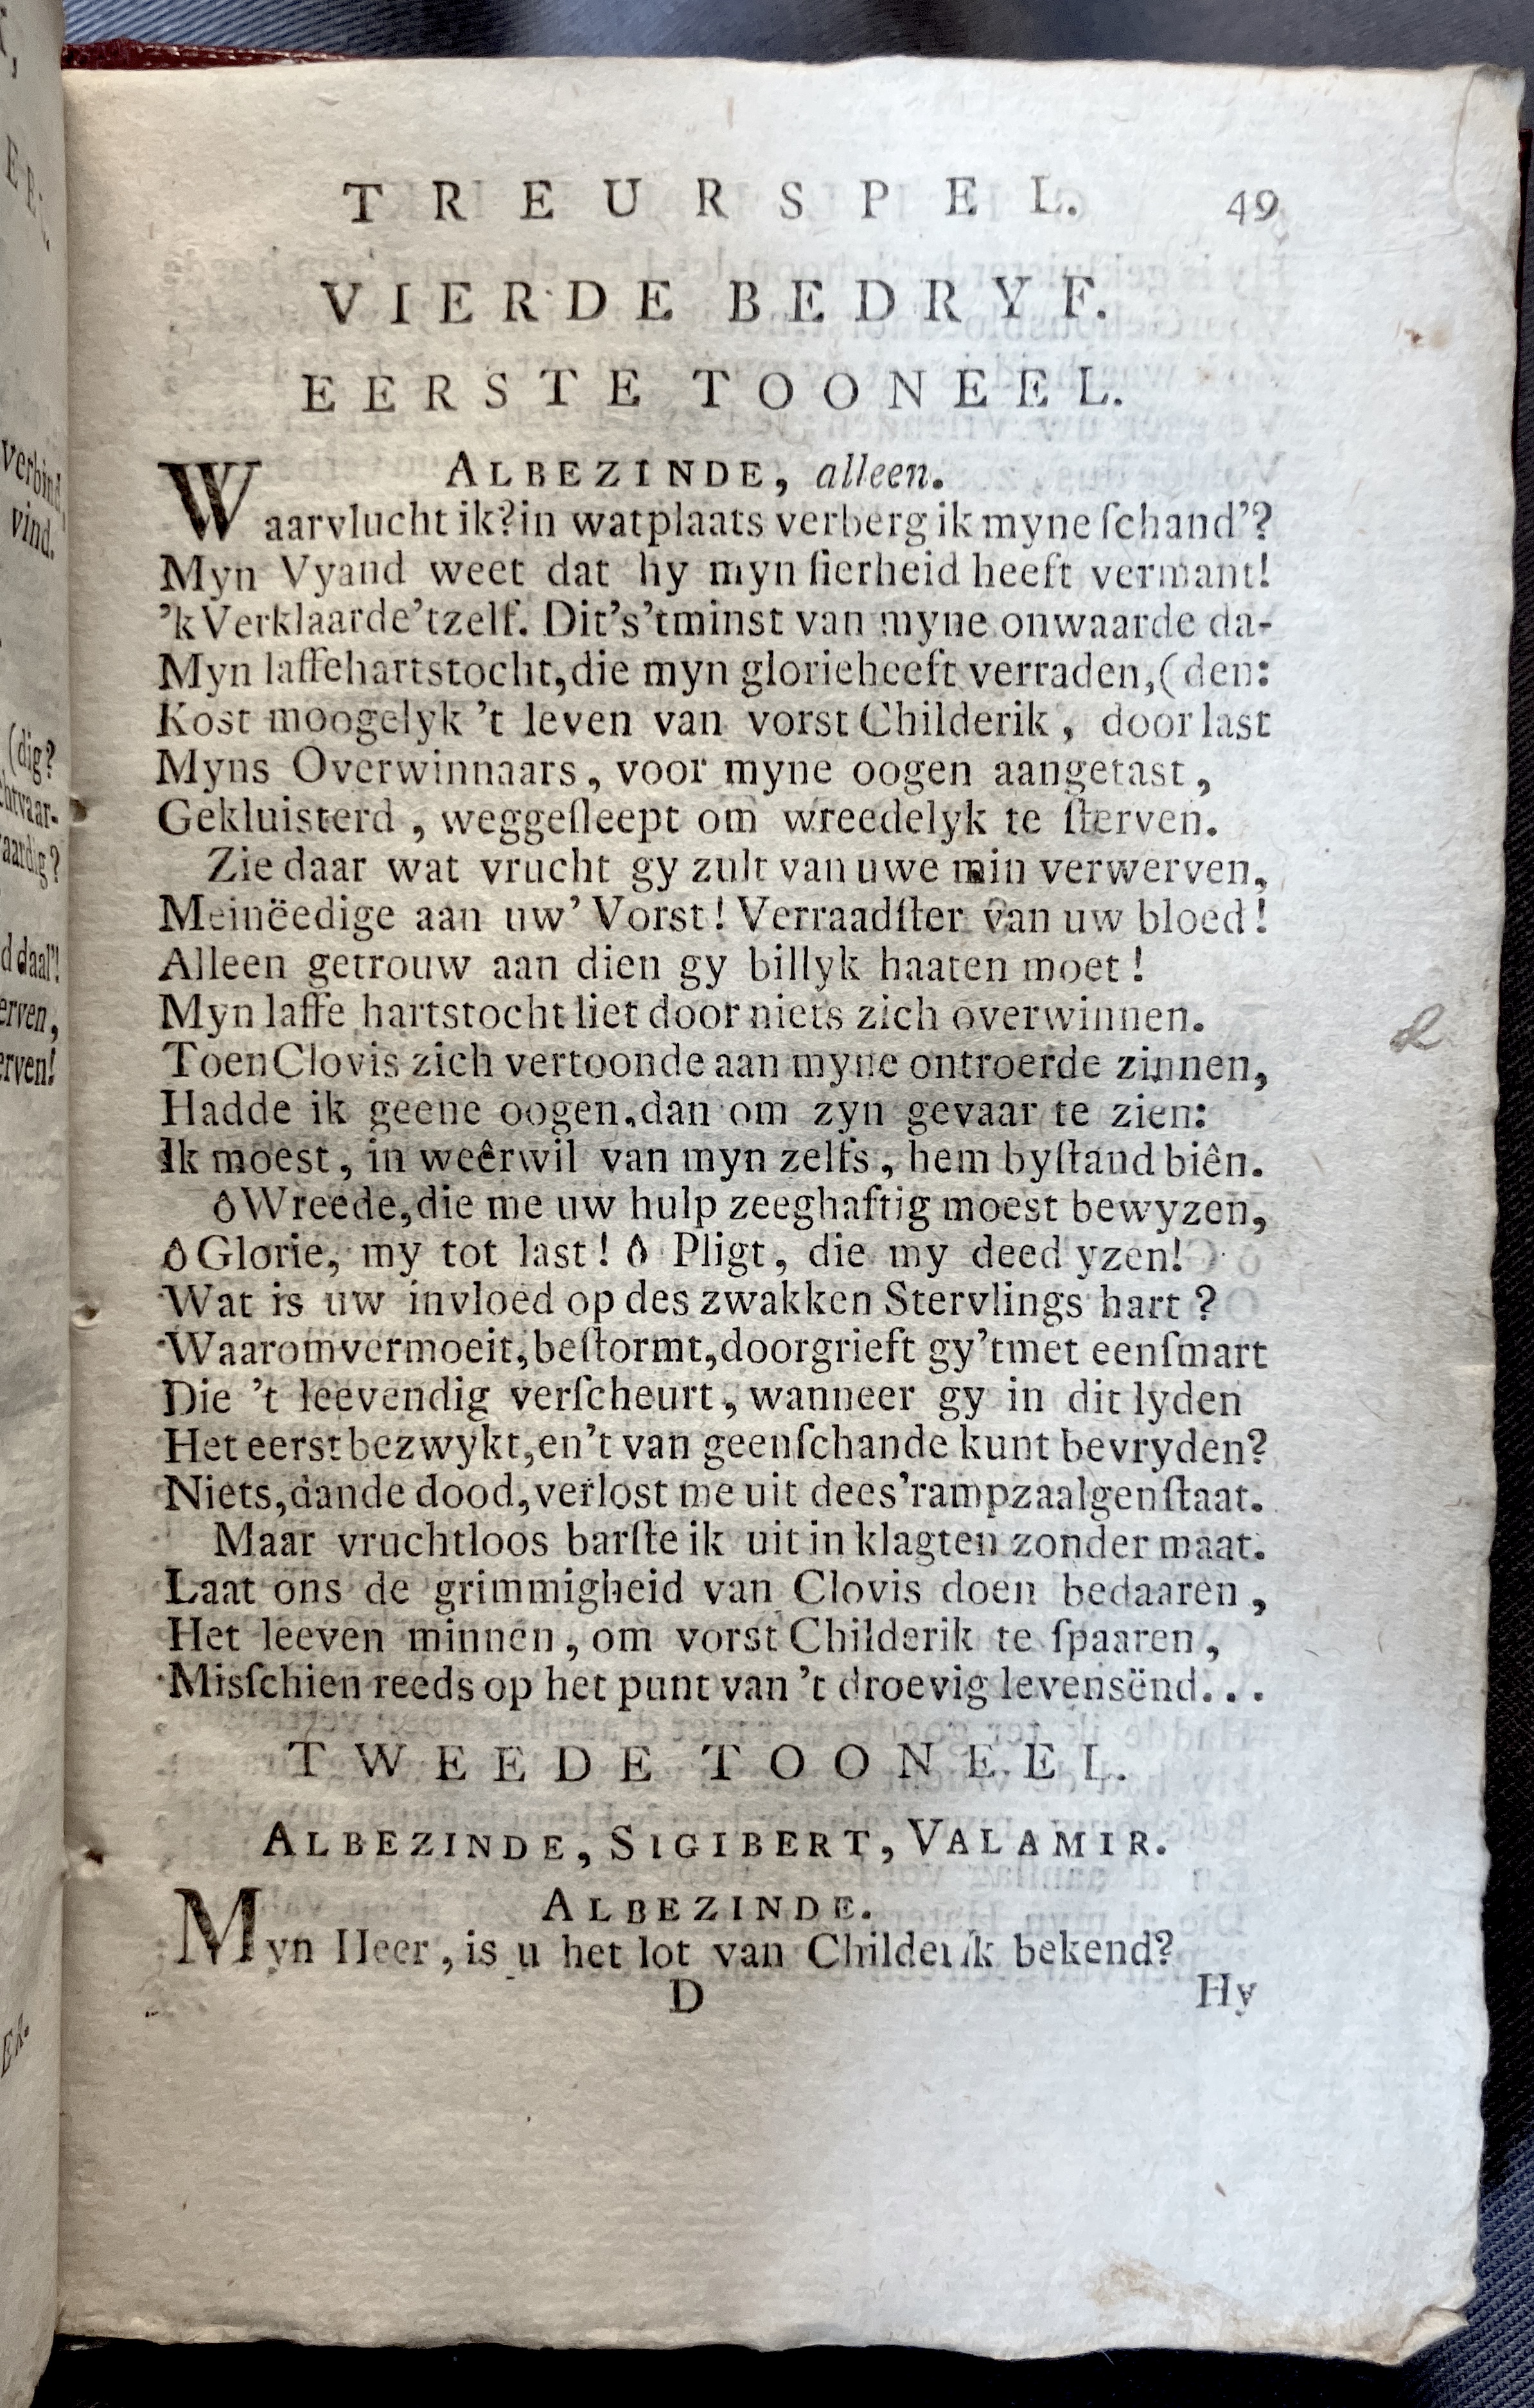 TREURSPEL. 49
VIERDE BEDRYF.
EERSTE TOONEEL.
ALBEZINDE, alleen.
Waarvlucht ik? in watplaats verberg ik myne ſchand’?
Myn Vyand weet dat hy myn fierheid heeft vermant!
’k Verklaarde ’t zelf. Dit’s ’t minst van myne onwaarde da-
Myn laffe hartstocht, die myn glorie heeft verraden, (den:
Kost moogelyk ’t leven van vorst Childerik, door last
Myns Overwinnaars, voor myne oogen aangetast,
Gekluisterd, weggeſleept om wreedelyk te ſterven.
Zie daar wat vrucht gy zult van uwe min verwerven,
Meinëedige aan uw’ Vorst! Verraadſter van uw bloed!
Alleen getrouw aan dien gy billyk haaten moet!
Myn laffe hartstocht liet door niets zich overwinnen.
Toen Clovis zich vertoonde aan myne ontroerde zinnen,
Hadde ik geene oogen, dan om zyn gevaar te zien:
Ik moest, in weêrwil van myn zelfs, hem byſtand biên.
ô Wreede, die me uw hulp zeeghaftig moest bewyzen,
ô Glorie, my tot last! ô Pligt, die my deed yzen!
Wat is uw invloed op des zwakken Stervlings hart?
Waarom vermoeit, beſtormt, doorgrieft gy ’t met een ſmart
Die ’t leevendig verſcheurt, wanneer gy in dit lyden
Het eerst bezwykt, en ’t van geen ſchande kunt bevryden?
Niets, dan de dood, verlost me uit dees’ rampzaalgen ſtaat.
Maar vruchtloos barſte ik uit in klagten zonder maat.
Laat ons de grimmigheid van Clovis doen bedaaren,
Het leeven minnen, om vorst Childerik te ſpaaren,
Misſchien reeds op het punt van ’t droevig levensënd...
TWEEDE TOONEEL.
ALBEZINDE, SIGIBERT, VALAMIR.
ALBEZINDE.
Myn Heer, is u het lot van Childerik bekend?
D Hy